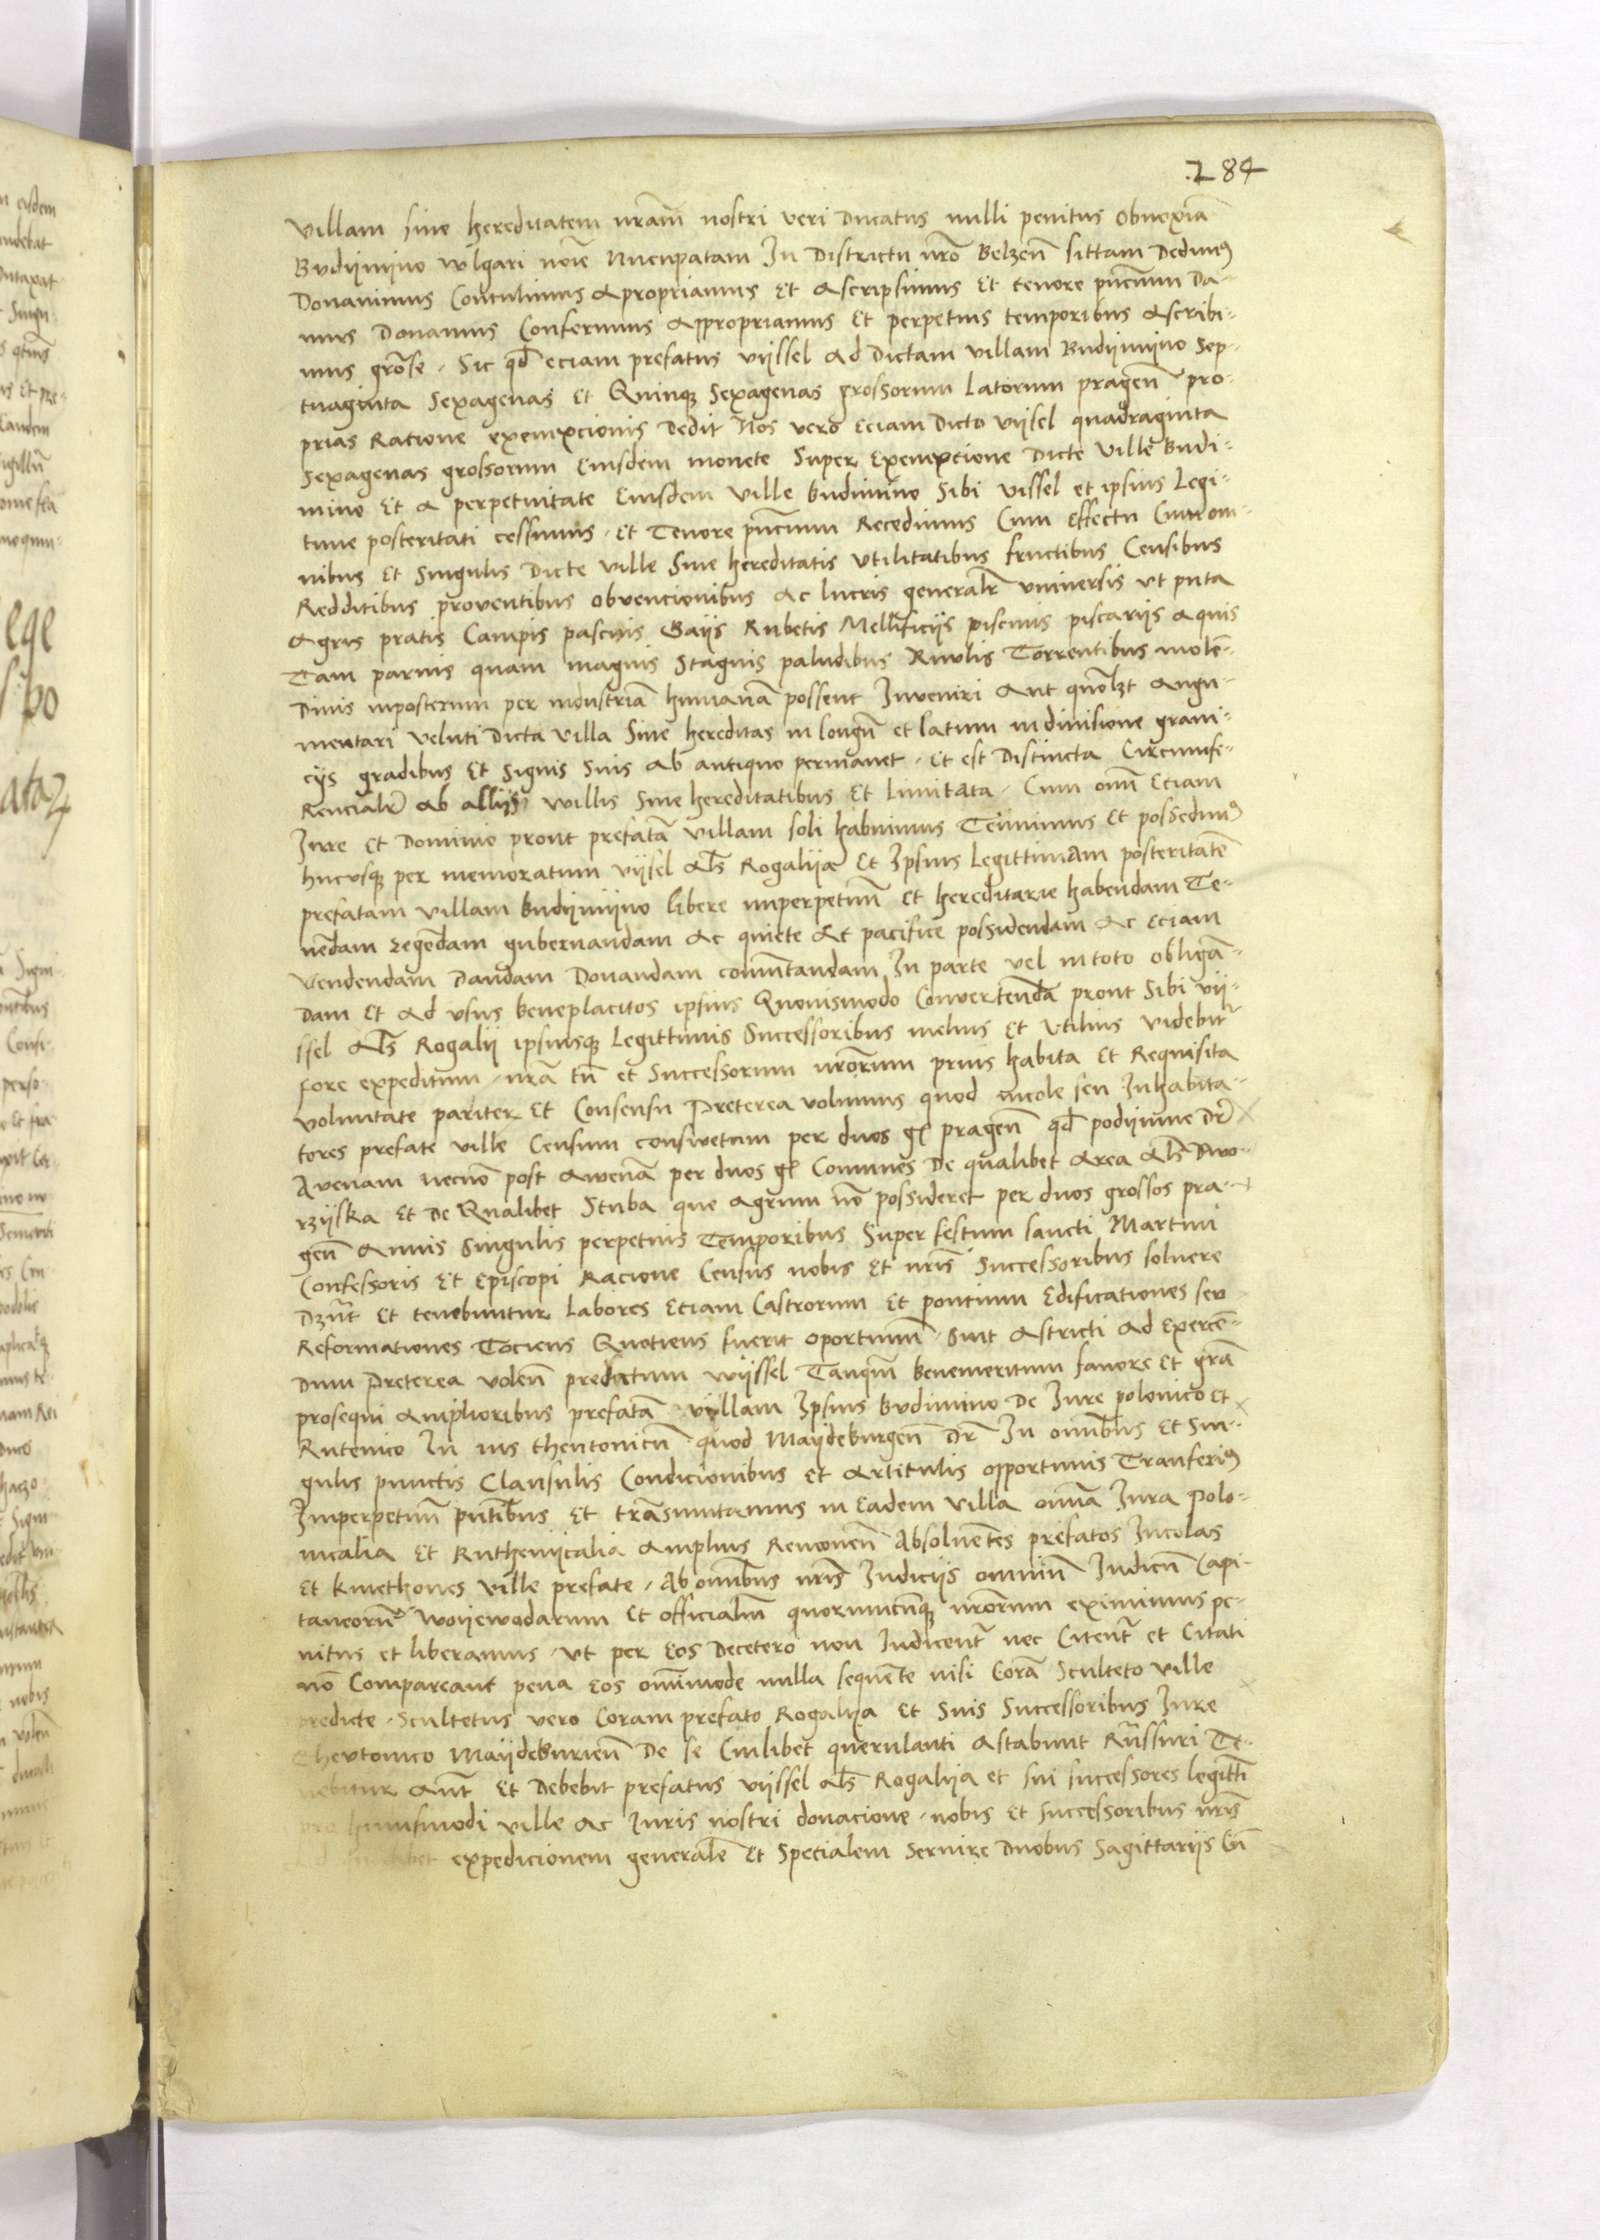 284
Villam siue hereditatem nr̄am nostri veri Ducatus nulli penitus obnoxiā
Budiimiino vulgari noīe Nuncupatam In Districtu nr̄o Belzen̄ sittam Dedimꝰ
Donauimus Contulimus Apropriamus Et Ascripsimus Et tenore pn̄cium Da-
mus Donamus Conferimus Appropriamus Et perpetuis temporibus Ascribi-
mus gr̄ose. Sic qd̄ eciam prefatus viissel Ad Dictam villam Budiimiino Sep-
tuaginta Sexagenas Et Quinqꝫ Sexagenas grossorum latorum pragen̄ pro-
prias Ratione exempcionis Dedit Nos vero Eciam Dicto viisel quadraginta
Sexagenas grossorum Eiusdem monete Super Exempcione Dicte ville Budi-
mino Et A perpetuitate Eiusdem ville budimino Sibi vissel et ipsius Legi-
time posteritati cessimus. Et Tenore pn̄cium Recedimus Cum Effectu Cum om-
nibus Et Singulis Dicte ville Siue hereditatis vtilitatibus fructibus Censibus
Redditibus prouentibus obuencionibus Ac lucris generalr̄ vniuersis vt puta
Agris pratis Campis pascuis Gaiis Rubetis Mellificiis piscinis piscariis aquis
Tam paruis quam magnis Stagnis paludibus Riuulis Torrentibus molē-
Dinis inposterum per industriā humanā possent Inueniri Aut quōlꝫt Augu-
mentari veluti Dicta villa Siue hereditas in longū et latum in diuisione grani-
ciis gradibus Et Signis Suis Ab antiquo permanet. Et est Distincta Circumfe-
Rencialr̄ Ab alliis villis Siue hereditatibus Et Limitata. Cum om̄i Eciam
Iure Et Dominio prout prefatā villam soli habuimus Tenuimus Et possedimꝰ
hucusqꝫ per memoratum viisel Al̄s Rogaliia Et Ipsius Legittimam posteritatē
prefatam villam Budiimiino libere inperpetuū Et hereditarie habendam Te-
nēdam regēdam gubernandam Ac quiete Et pacifice possidendam Ac Eciam
Vendendam Dandam Donandam com̄utandam In parte vel in toto obligā-
Dam Et Ad vsus beneplacitos ipsius Quouismodo Conuertendā prout Sibi vii-
ssel Al̄s Rogalii ipsiusqꝫ Legittimis Successoribus melius Et vtilius videbitr̄
fore expeditum. nr̄a tn̄ et Successorum nr̄orum prius habita Et Requisita
voluntate pariter Et Consensu Preterea volumus quod incole seu Inhabita-
tores prefate ville Censum consuetum per duos gͬ pragen̄ qd̄ podiimne Dr̄
Auenam necnō post Auenā per duos gͬ Comunes De qualibet Area Al̄s Dwo-
rziiska Et De Qualibet Stuba que Agrum nō possideret per duos grossos pra-
gen̄ Annis Singulis perpetuis Temporibus Super festum sancti Martini
Confessoris Et Episcopi Racione Census nobis Et nr̄is Successoribus soluere
Dꝫn̄t Et tenebuntur Labores Eciam Castrorum Et pontium Edificationes seu
Reformationes Tociens Quotiens fuerit oportunū. sint Astricti Ad Exercē-
Dum Preterea volen̄ predictum wiissel Tanqm̄ benemeritum fauore Et gr̄a
prosequi Amplioribus prefatā villam Ipsius Budimino De Iure polonico Et
Rutenico In ius theutonicū quod Maydeburgen̄ Dr̄ In om̄ibus Et Sin-
gulis punctis Clausulis Condicionibus Et Articulis opportunis Tranferimꝰ
Imperpetuū pn̄tibus Et trāsmutamus in Eadem villa om̄ia Iura Polo-
nicalia Et Rutheniicalia Amplius Remouen̄ Absoluentes prefatos Incolas
Et kmethones ville prefate. Ab om̄ibus nr̄is Iudiciis omniū Iudicū Capi-
taneorū woyewodarum Et officialiū quorumcūqꝫ nr̄orum eximimus pe-
nitus et liberamus. vt per Eos Decetero non Iudicentr̄ nec Citentr̄ et Citati
nō Compareant pena Eos om̄imode nulla sequente nisi Corā Sculteto ville
predicte. Scultetus vero Coram prefato Rogaliia Et Suis Successoribus Iure
Theutonico Maydeburien̄ De se Cuilibet querulanti Astabunt Rn̄ssuri Te-
nebitur Aut̄ Et Debebit prefatus viissel Al̄s Rogaliia et sui successores legitti
pro huiusmodi ville Ac Iuris nostri donacione. nobis Et Successoribus nr̄is
expedicionem generalē Et Specialem Seruire Duobus Sagittariis Cū